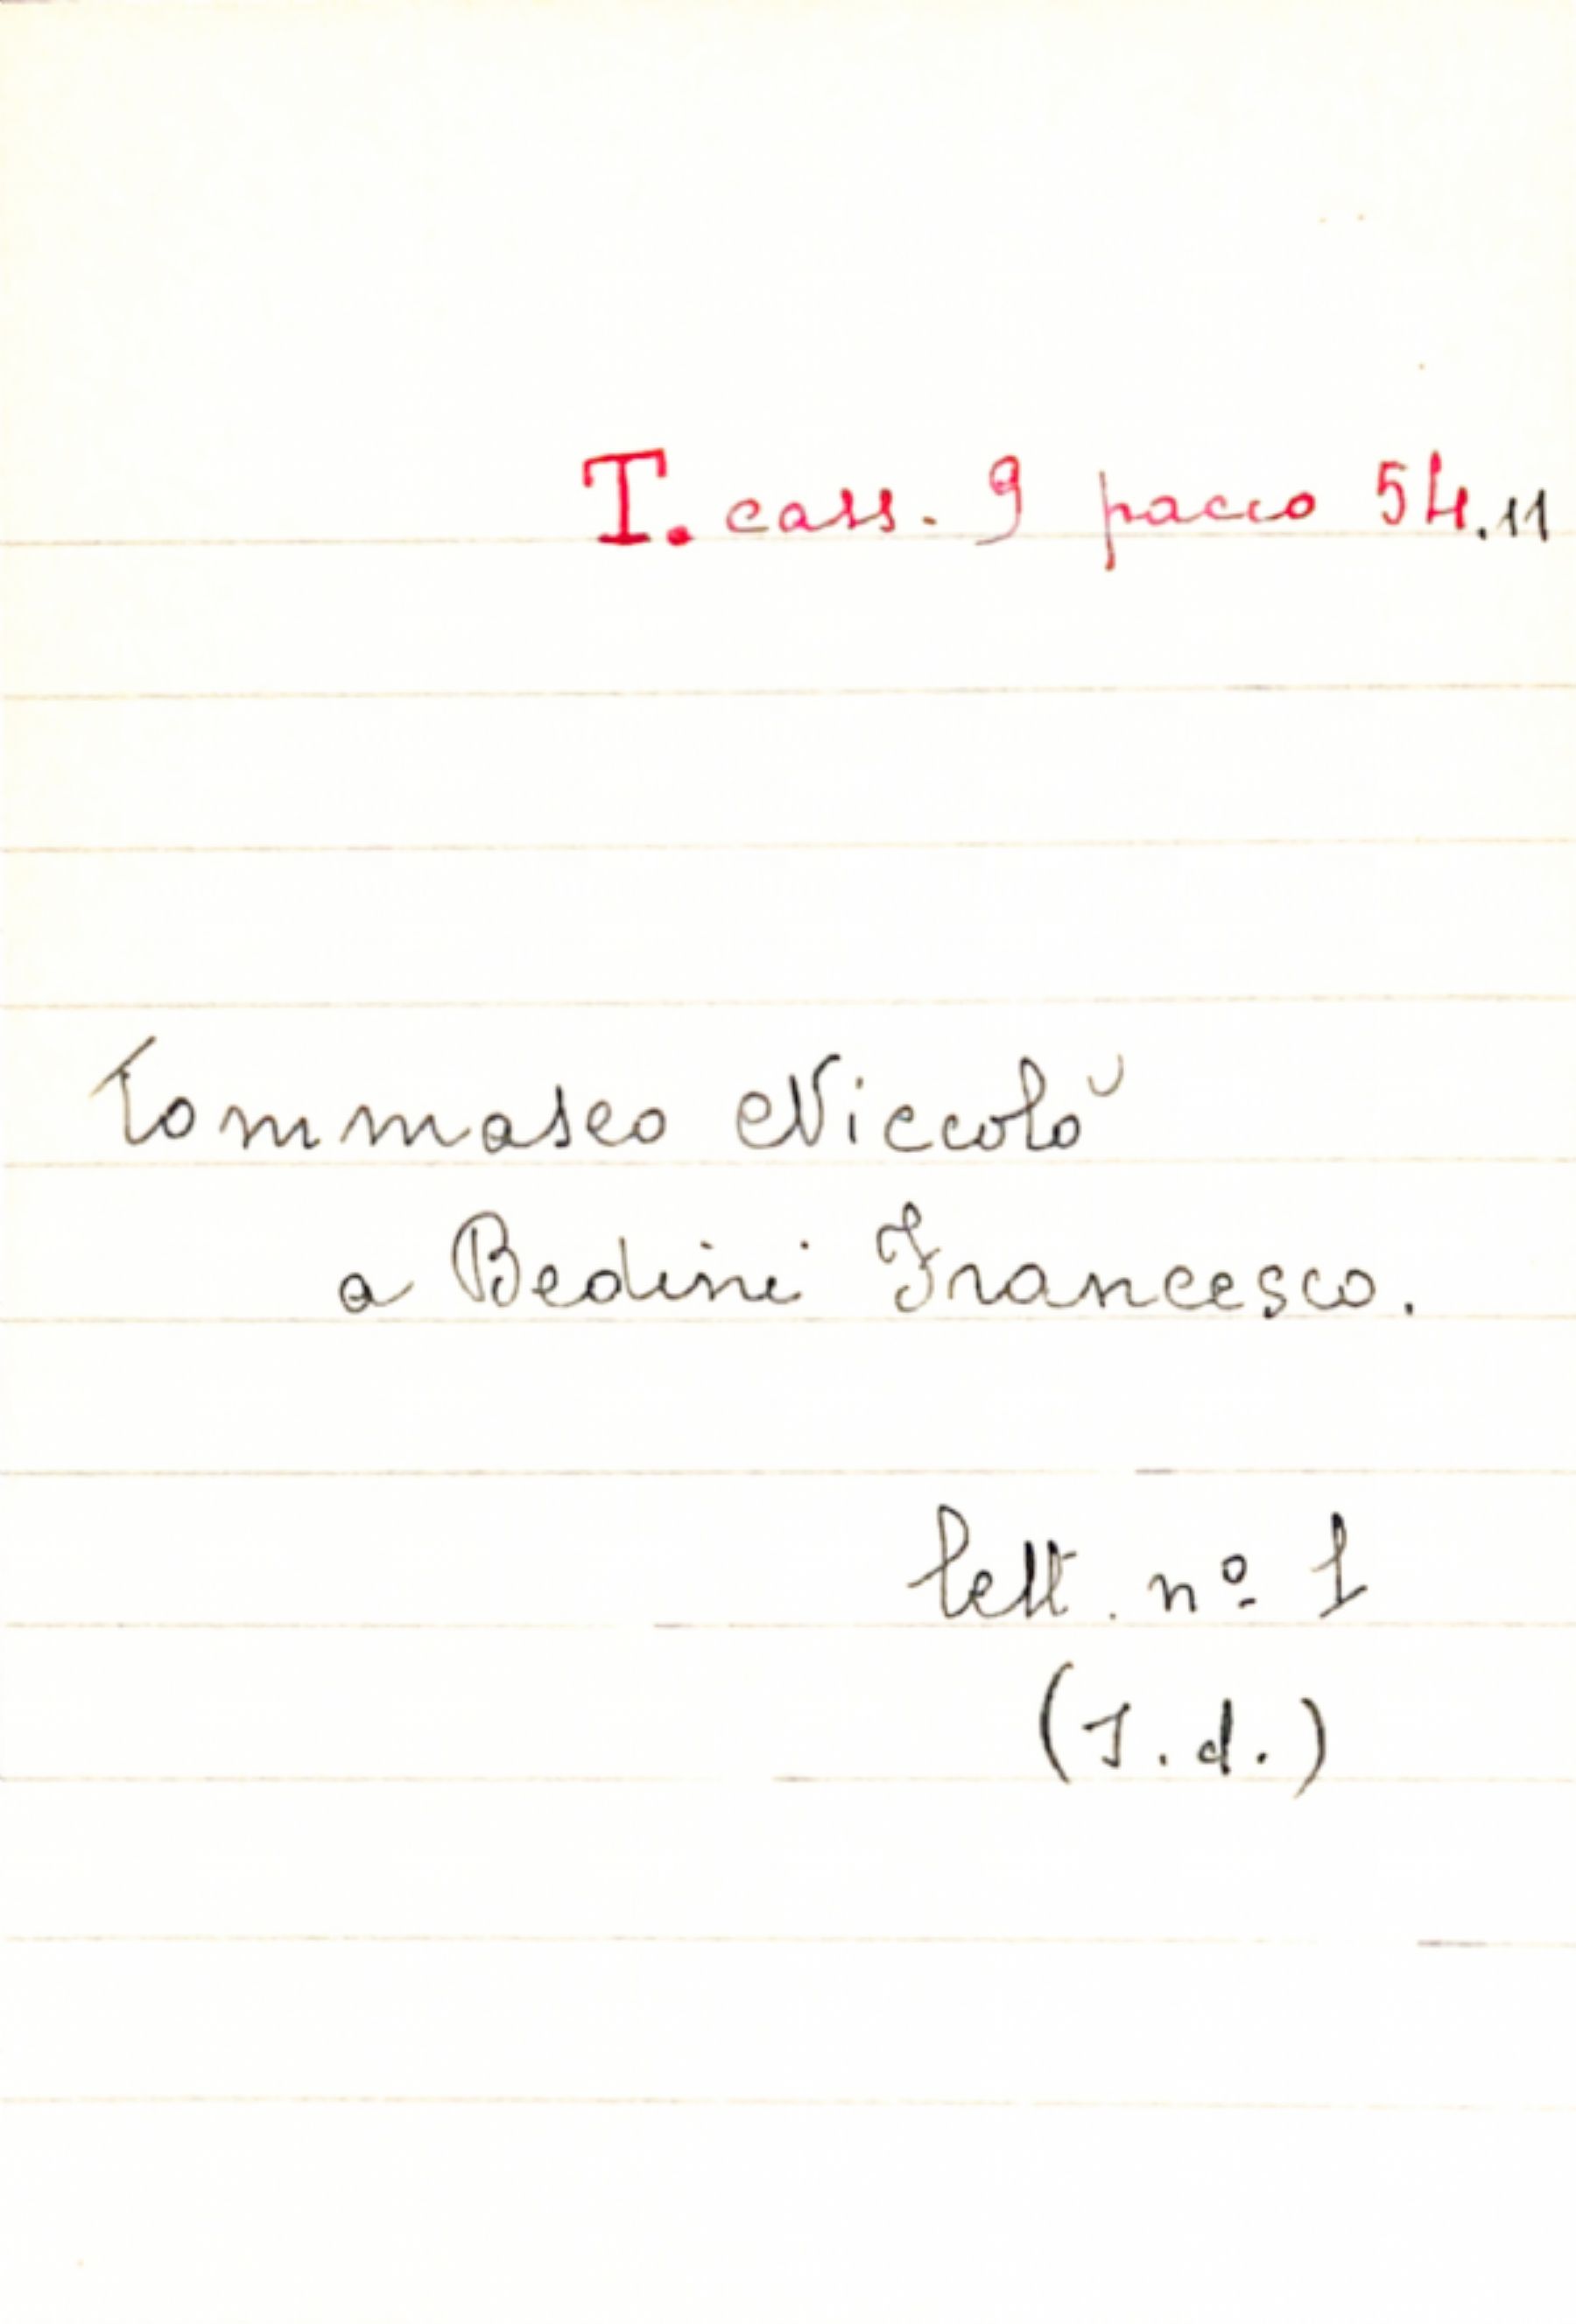 T. cass. 9 pacco 54.11
Tommaseo Niccolò
a Bedini Francesco.
lett. nº 1
(s.d.)